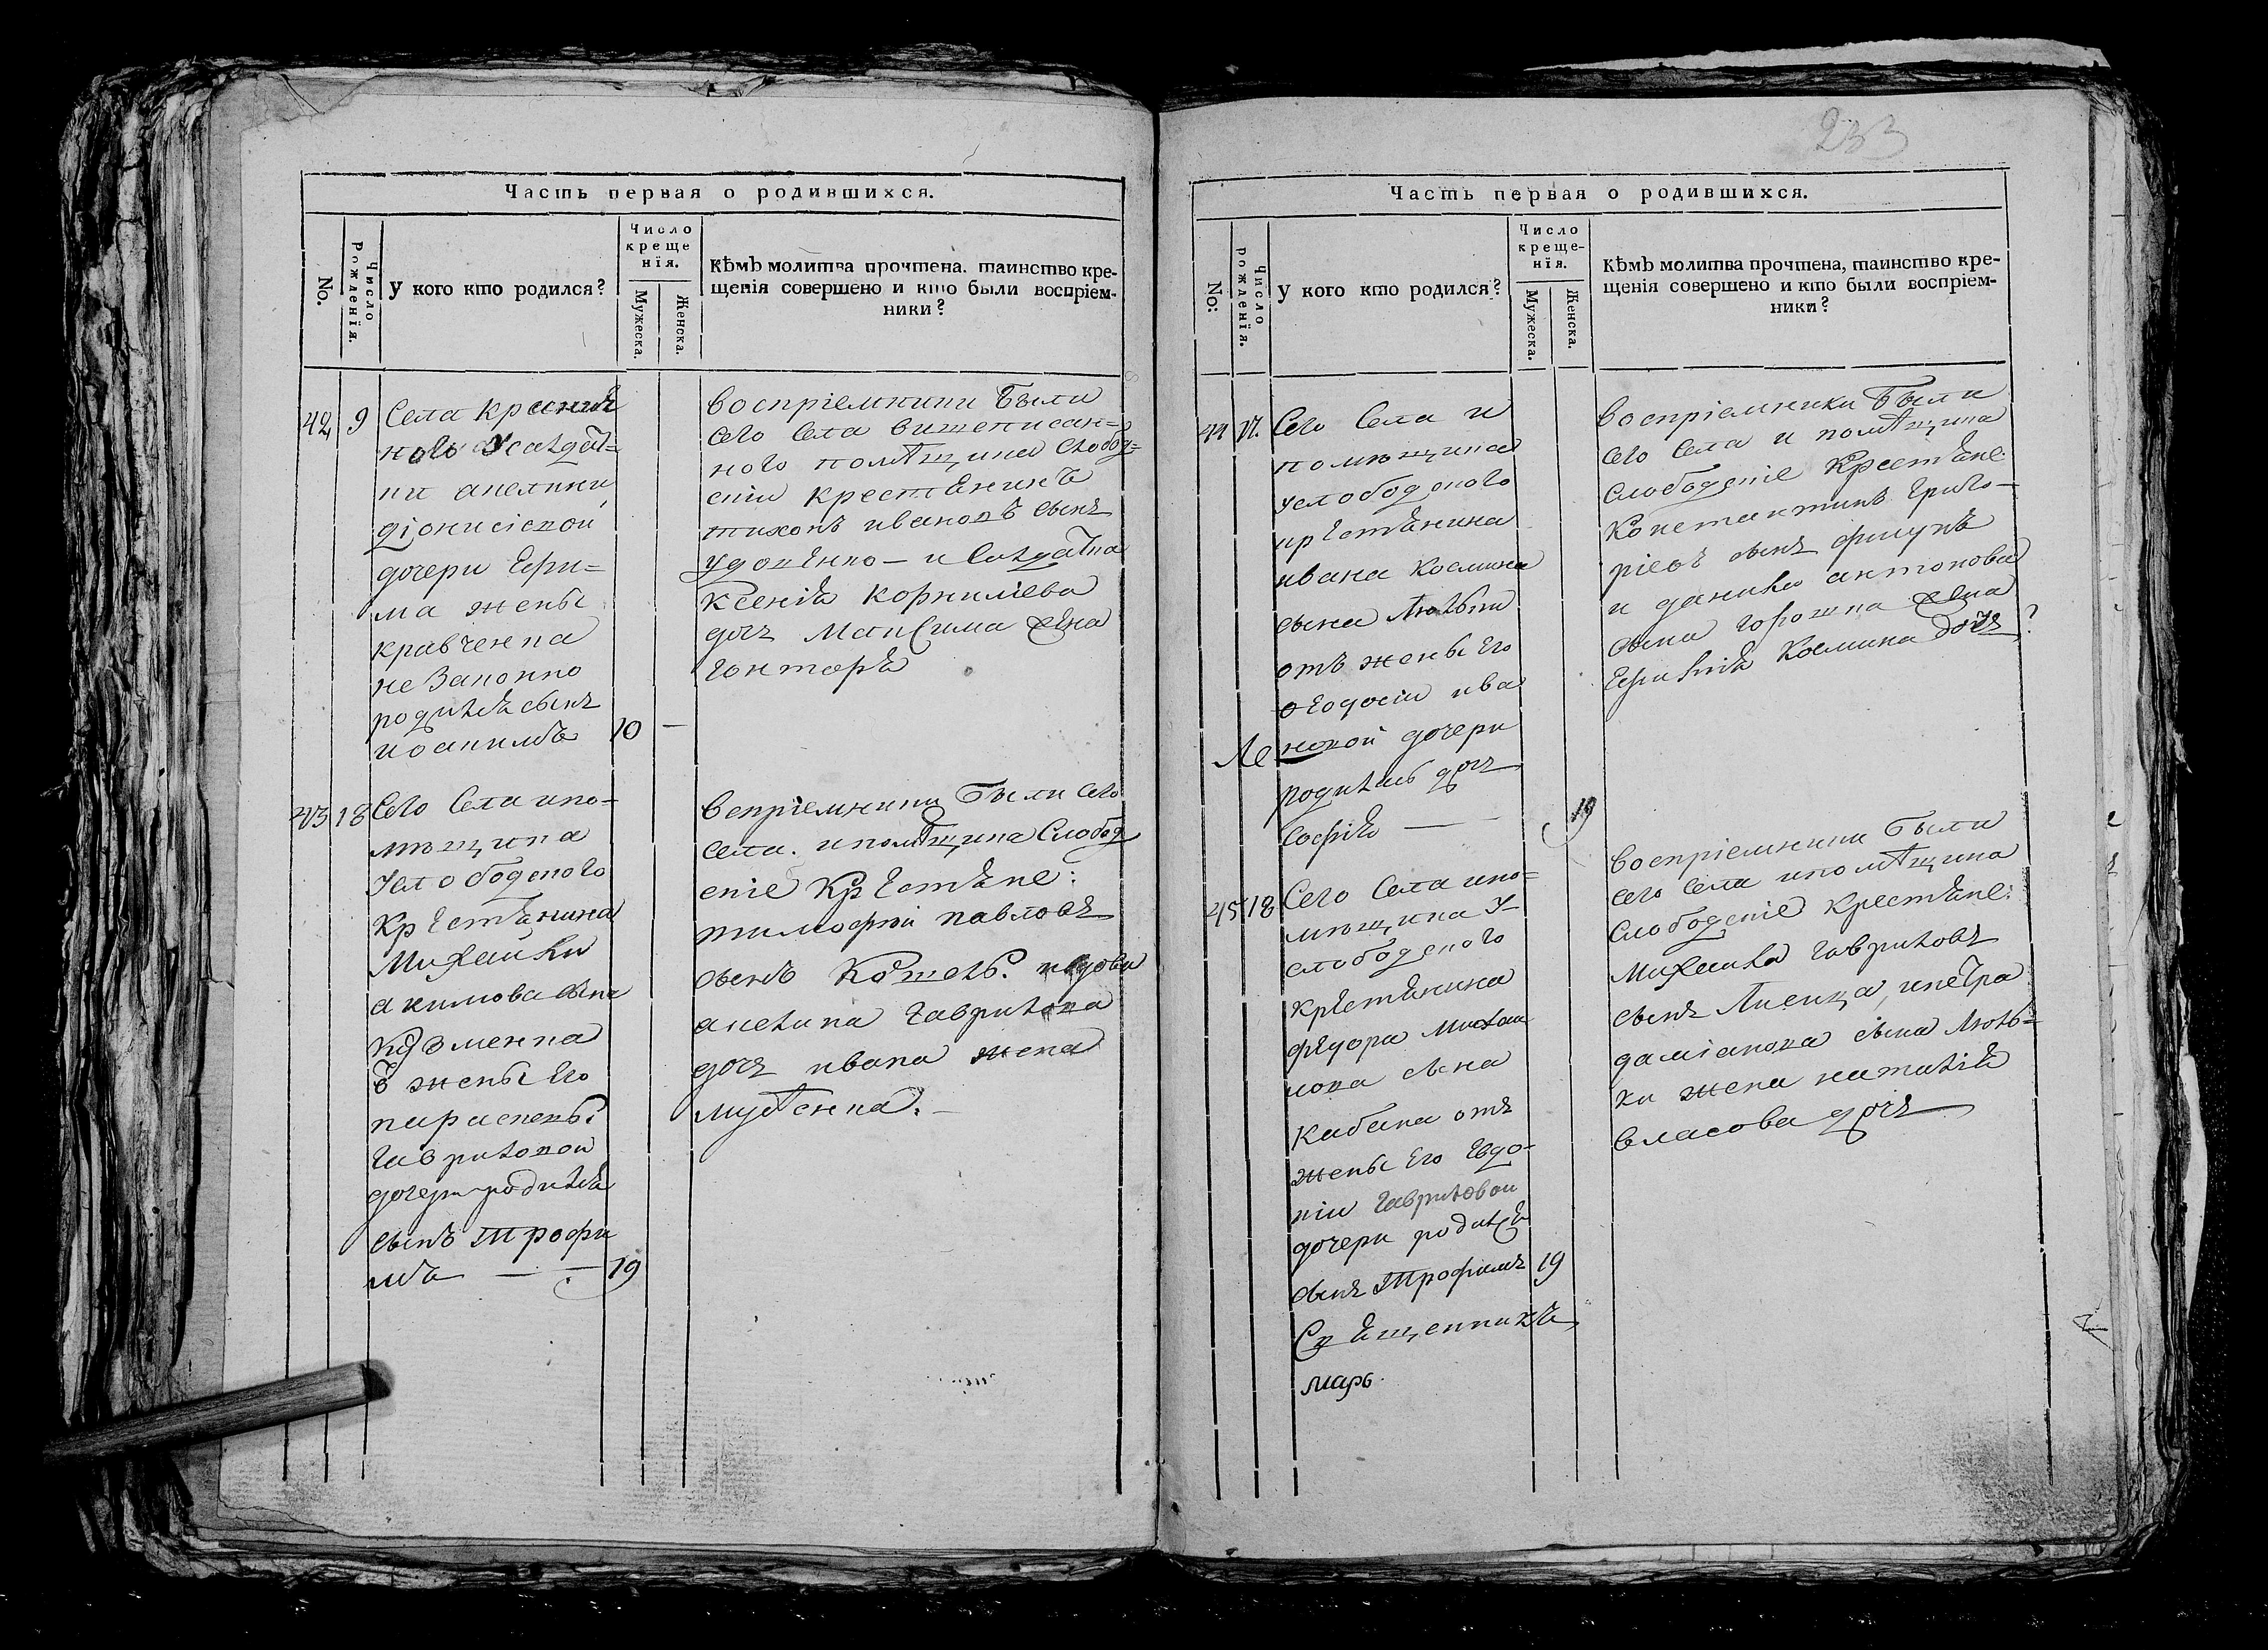 233
Часть первая о родившихся.
No.
Число рожденїя.
У кого кто родился?
Число
креще
нїя.
Мужеска.
Женска.
Кѣмъ молитва прочтена. таинство кре-
щенія совершено и кто были воспріем-
ники?
42
9
Села
ного
дочери Ефи=
ма жены
кравченка
не Законно
родился сынъ
иоакимъ
10
воспріемники Были
сего села вишеписан=
ного помѣщика слобод=
скіи крестянинъ
тихонъ ивановъ сынъ
удовѣнко и Солдатка
Ксенія корниліева
дочъ Максима жена
гонтаря
43
18
Сего Села и по-
мѣщика
услободеного
Крестянина
Михаила
акимова сына
Кузменка
ѿ жены Его
параскевы
Гавриловой
дочери родился
сынъ Трофи
мъ
19
воспріемники Были Сего
села. и помѣщика Слобод
скіе Крестяне:
тимофей павловъ
сынъ
Гаврилова
дочъ ивана жена
Часть первая о родившихся.
No:
Число рожденїя.
У кого кто родился?
Число
креще-
нїя.
Мужеска.
Женска.
Кѣмъ молитва прочтена, таинство кре-
щенія совершено и кто были воспріем-
ники?
44
17.
Сего Села и
помѣщика
услободеного
крестянина
ивана Космина
сына
отъ жены Его
ѳеодосіи ива
Ле
новой дочери
родилась дочъ
софія
19
воспріемники Были
сего села и помѣщика
слободскіе Крестяне:
Константинъ Григо-
ріевъ сынъ
и данила антонова
сына горошка жена
Космина дочъ
45
18
Сего Села и по=
мѣщика У-
слободеного
крестянина
федора Михаи
лова сына
Кабана отъ
жены Его Евдо-
кіи Гавриловой
дочери родился
сынъ Трофимъ
19
Священникъ
марь
воспріемники Были
сего села и помѣщика
слободскіе крестяне:
Михаила Гавриловъ
сынъ Лисица, и петра
даміанова сына Люль=
ки жена наталія
власова дочъ